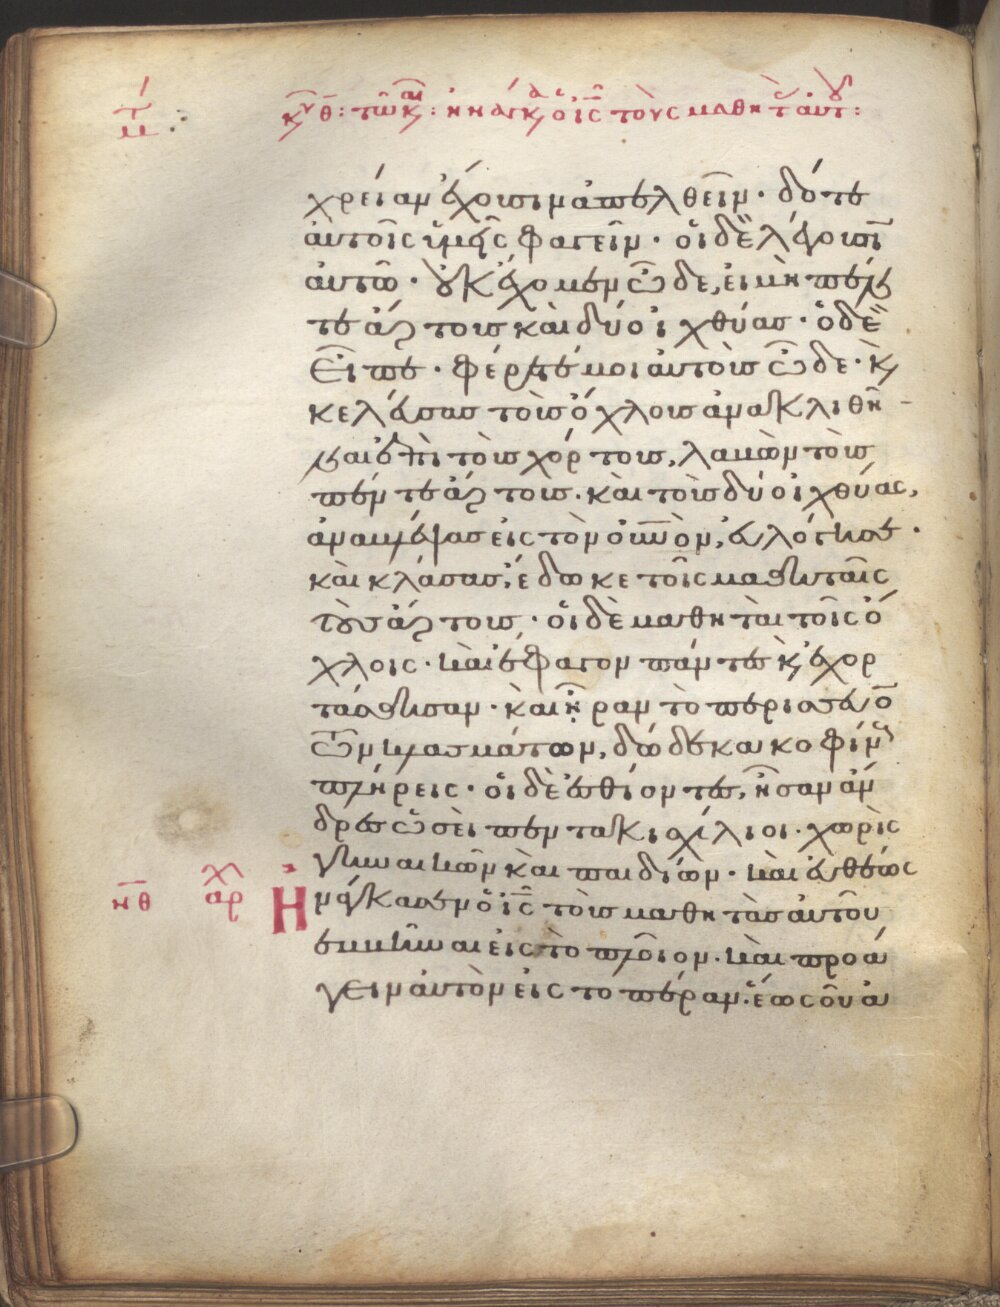 χρείαν ἔχουσιν ἀπελθεῖν· δότε
αὐτοῖς ὑμεῖς φαγεῖν· οἱ δὲ λέγουσϊ
αὐτῶ· οὐκ ἔχομεν ὧδε, εἰ μὴ πέν
τε ἄρτους καὶ δύο ἰχθύας· ὁ δὲ
εἶπε· φέρετέ μοι αὐτοὺς ὧδε· κ
κελεύσας τοὺς ὄχλους ἀνακλιθῆ
ναι ἐπὶ τοὺς χόρτους, λαβὼν τοὺς
πέντε ἄρτους· καὶ τοὺς δύο ἰχθύας,
ἀναβλέψας εἰς τὸν οὐνὸν, εὐλόγησε·
καὶ κλάσας, ἔδωκε τοῖς μαθηταῖς
τοὺς ἄρτους· οἱ δὲ μαθηταὶ τοῖς ὄ
χλοις· καὶ ἔφαγον πάντες κ ἐχορ
τάσθησαν· καὶ ἦραν τὸ περισσεῦο
τῶν κλασμάτων, δώδεκα κοφίν
πλήρεις· οἱ δὲ ἐσθίοντες, ἦσαν ἄν
δρες ὡσεὶ πεντακισχίλιοι· χωρὶς
γυναικῶν καὶ παιδίων· καὶ εὐθέως
νθ αρχ Ἠνάγκασεν ὁ ις τοὺς μαθητὰς αὐτοῦ
ἐμβῆναι εἰς τὸ πλοῖον· καὶ προά
γειν αὐτὸν εἰς τὸ πέραν· ἕως οὗ ἀ